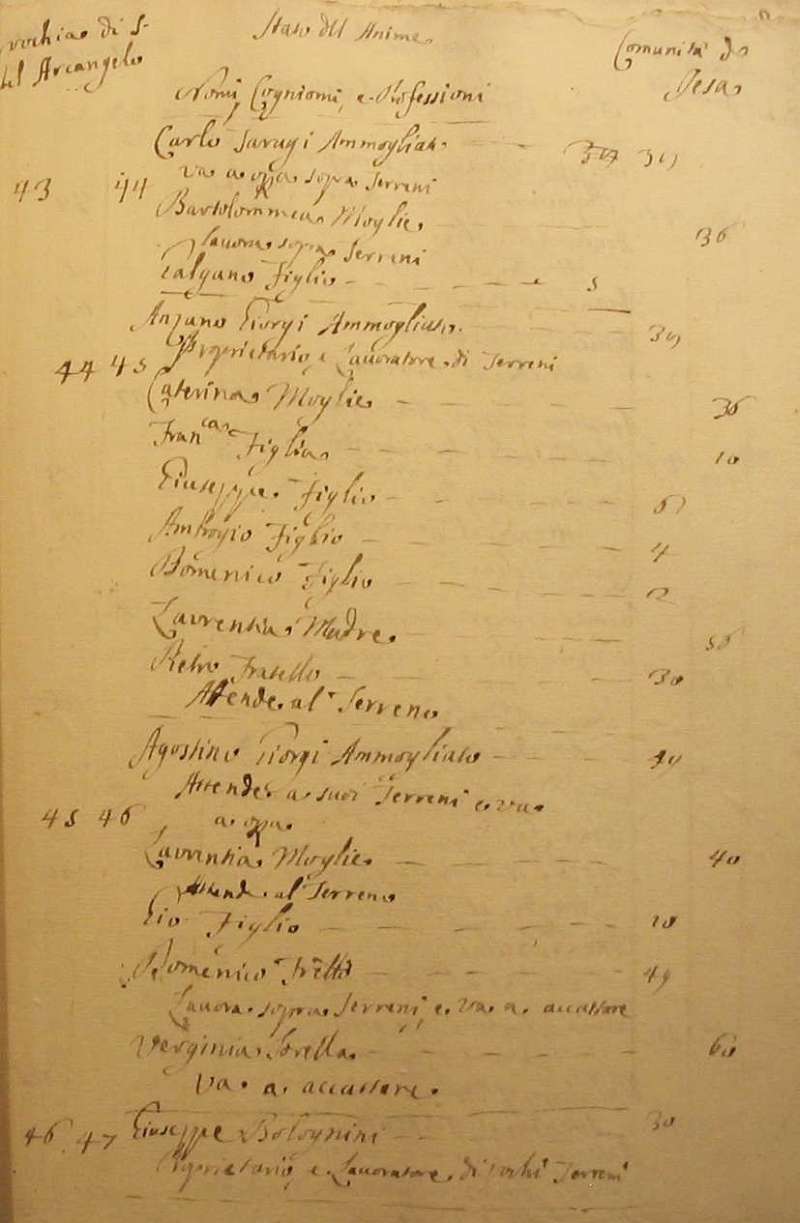 Stato dell Anime
Comunità di
del Arcangelo
Nomi, Cogniomi, e Professioni
Carlo Ammogliato 39
va a opra sopra Terreni
43 44
Bartolommea Moglie 36
Lauora sopra Terreni
Galgano Figlio 5
Anzano Giorgi Ammogliato 39
Proprietario, e Lauoratore di Terreni
44 45
Caterina Moglie 36
Fran.ca Figlia 10
Giuseppe Figlio
Ambrogio Figlio 4
Domenico Figlio 2
Laurentia Madre
Pietro Fratello 30
Attende al Terreno
Agostino Giorgi Ammogliato
Attende a suoi Terreni e va
45 46 a opra
Laurentia Moglie 40
Attende al Terreno
Gio Figlio 10
Domenico Fratello 49
Lauora sopra Terreni, e va a accattare
Verginia Sorella 60
Va a accattare
46 47 Giuseppe Bolognini 30
Proprietario, e Lauoratore di pochi Terreni